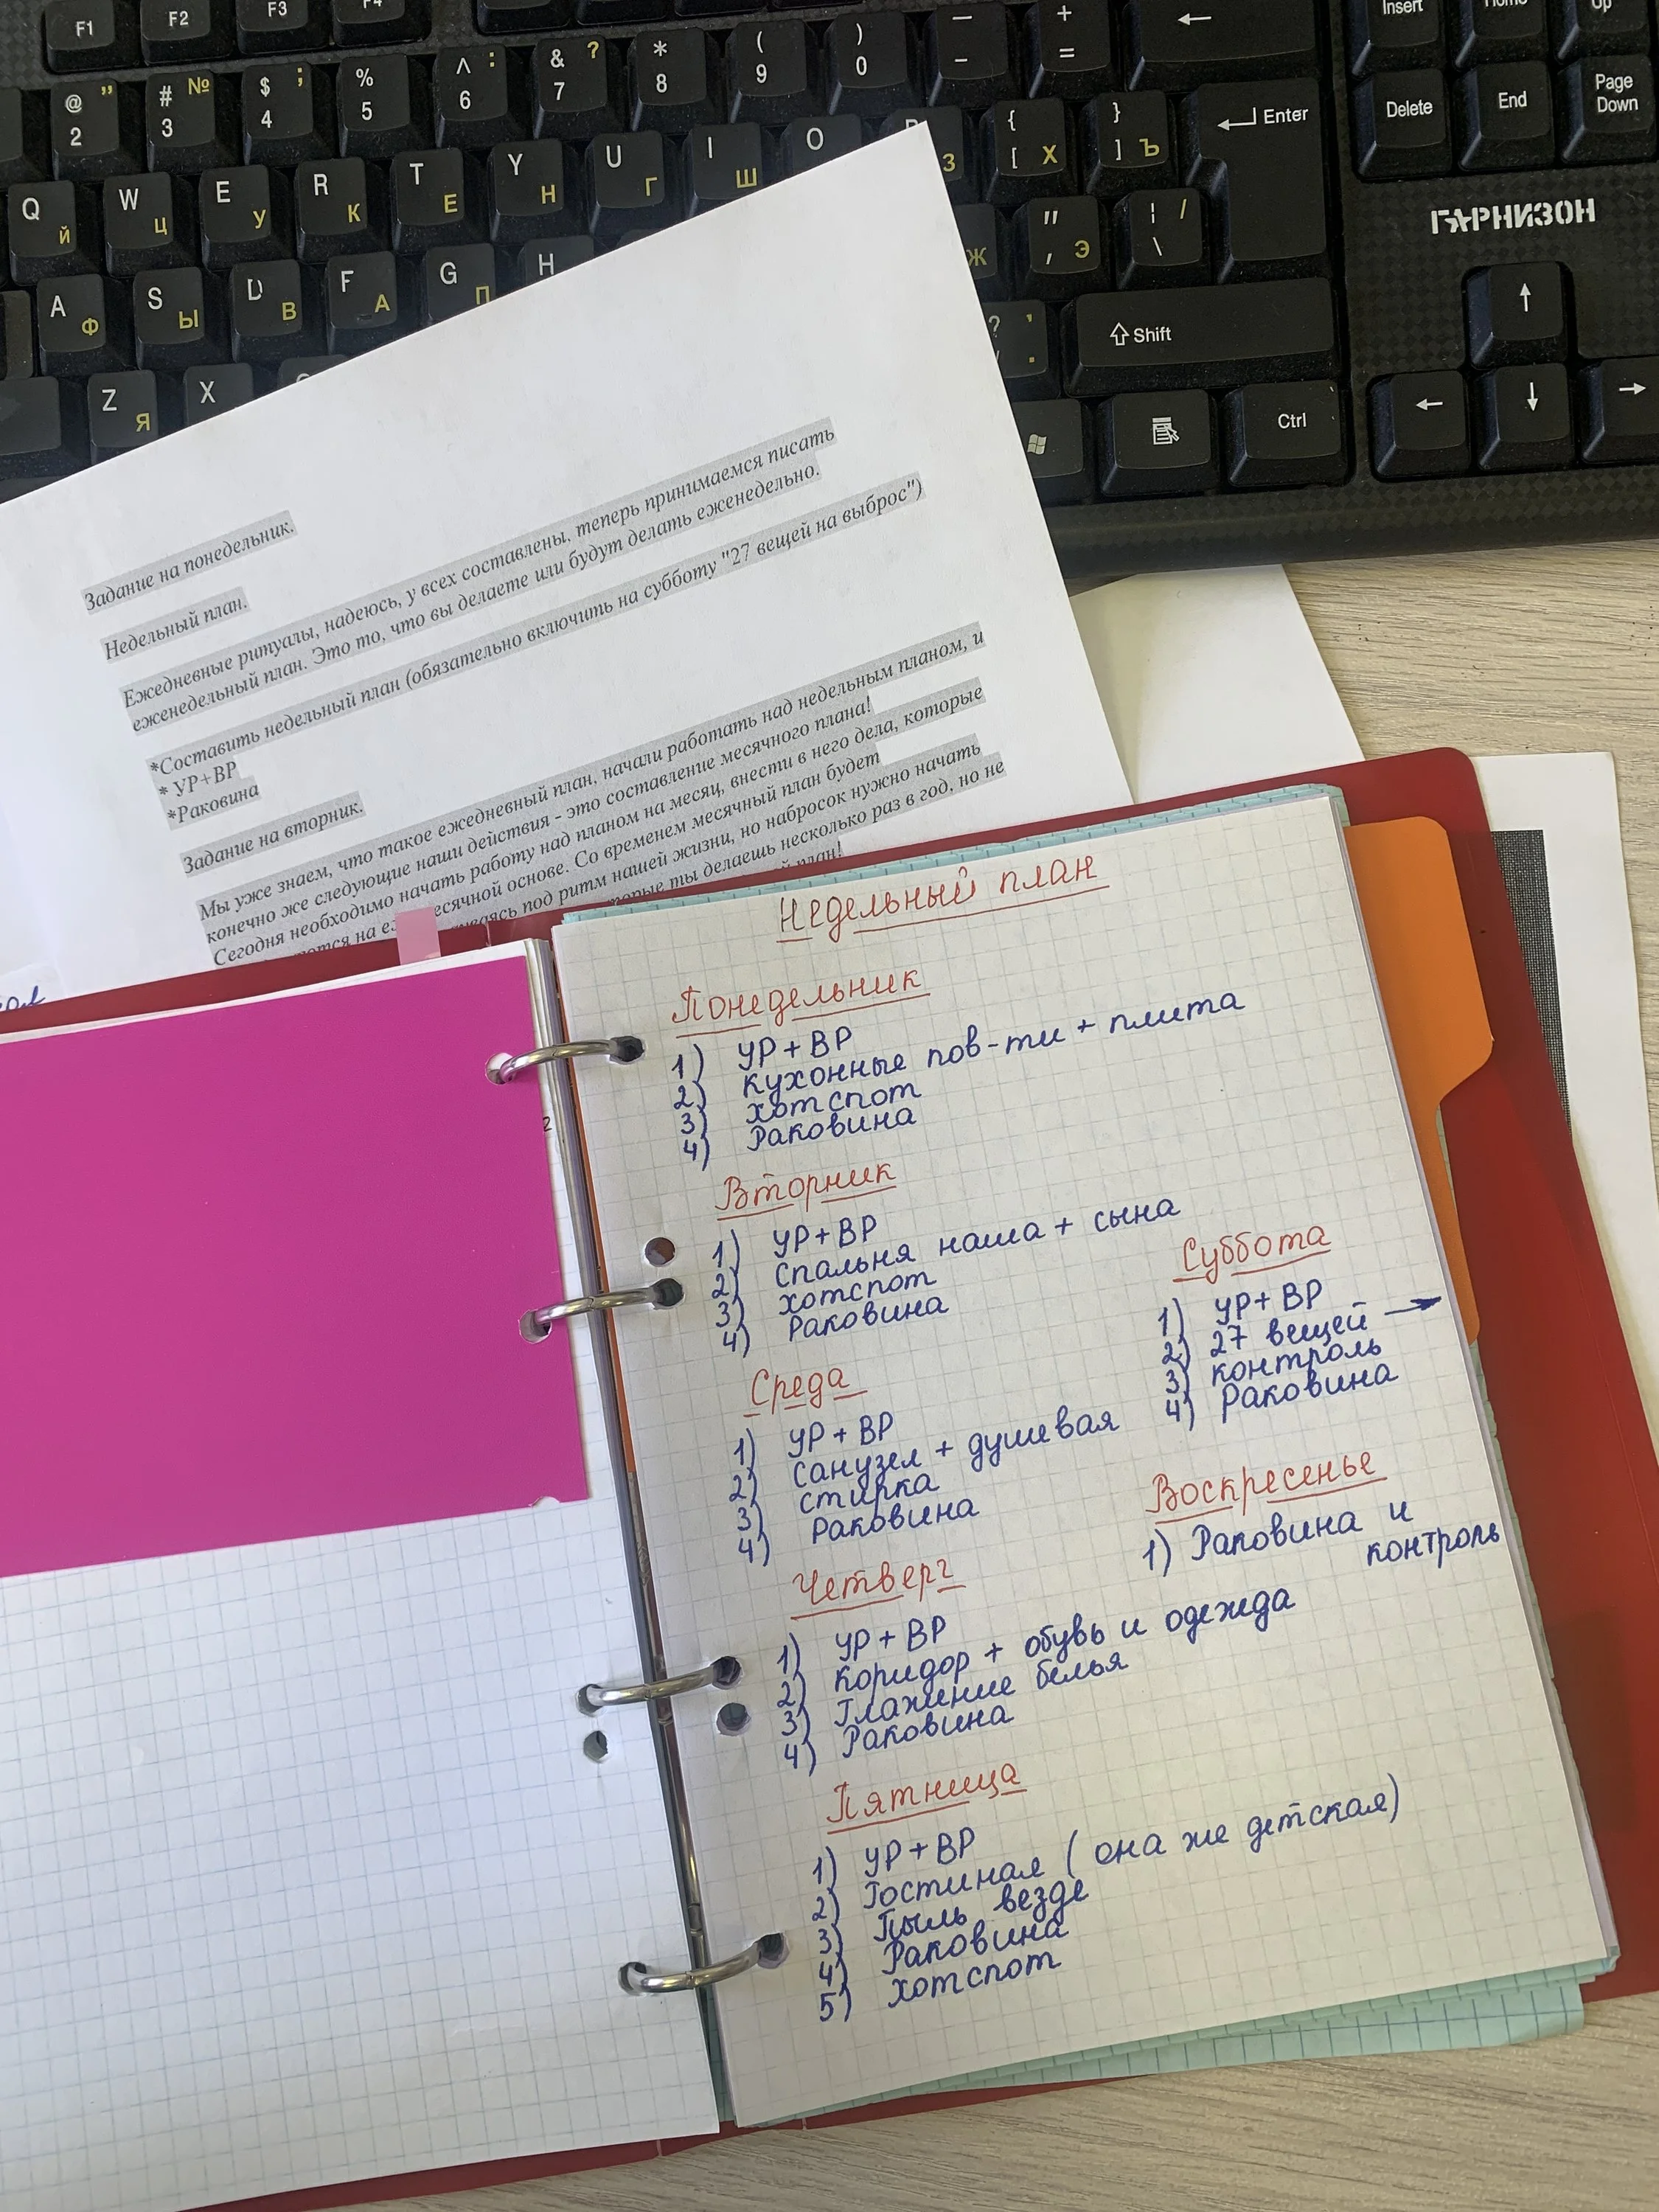 F1
F2
F3
F4
Insert
Home
Up
@ " 2
# № 3
$ ; 4
% 5
^ : 6
& ? 7
* 8
( 9
) 0
— -
+ =
←
Delete
End
Page Down
Q Й
W Ц
E У
R К
T Е
Y Н
U Г
I Ш
O
P З
{ [ Х
} ] Ъ
Enter
ГАРНИЗОН
A Ф
S Ы
D В
F А
G П
H
Ж
" ' Э
¦ / \
Z Я
X
? , .
Shift
Ctrl
Задание на понедельник.
Недельный план.
Ежедневные ритуалы, надеюсь, у всех составлены, теперь принимаемся писать
еженедельный план. Это то, что вы делаете или будут делать еженедельно.
*Составить недельный план (обязательно включить на субботу "27 вещей на выброс")
* УР+ВР
*Раковина
Задание на вторник.
Мы уже знаем, что такое ежедневный план, начали работать над недельным планом, и
конечно же следующие наши действия - это составление месячного плана!
Сегодня необходимо начать работу над планом на месяц, внести в него дела, которые
на основе. Со временем месячный план будет
под ритм нашей жизни, но набросок нужно начать
ты делаешь несколько раз в год, но не
план!
Недельный план
Понедельник
1) УР + ВР
2) кухонные пов-ти + плита
3) хотспот
4) Раковина
Вторник
1) УР + ВР
2) Спальня наша + сына
3) хотспот
4) Раковина
Среда
1) УР + ВР
2) Санузел + душевая
3) стирка
4) Раковина
Четверг
1) УР + ВР
2) коридор + обувь и одежда
3) Глажение белья
4) Раковина
Пятница
1) УР + ВР
2) Гостиная ( она же детская)
3) Пыль везде
4) Раковина
5) хотспот
Суббота
1) УР + ВР
2) 27 вещей →
3) контроль
4) Раковина
Воскресенье
1) Раковина и
контроль